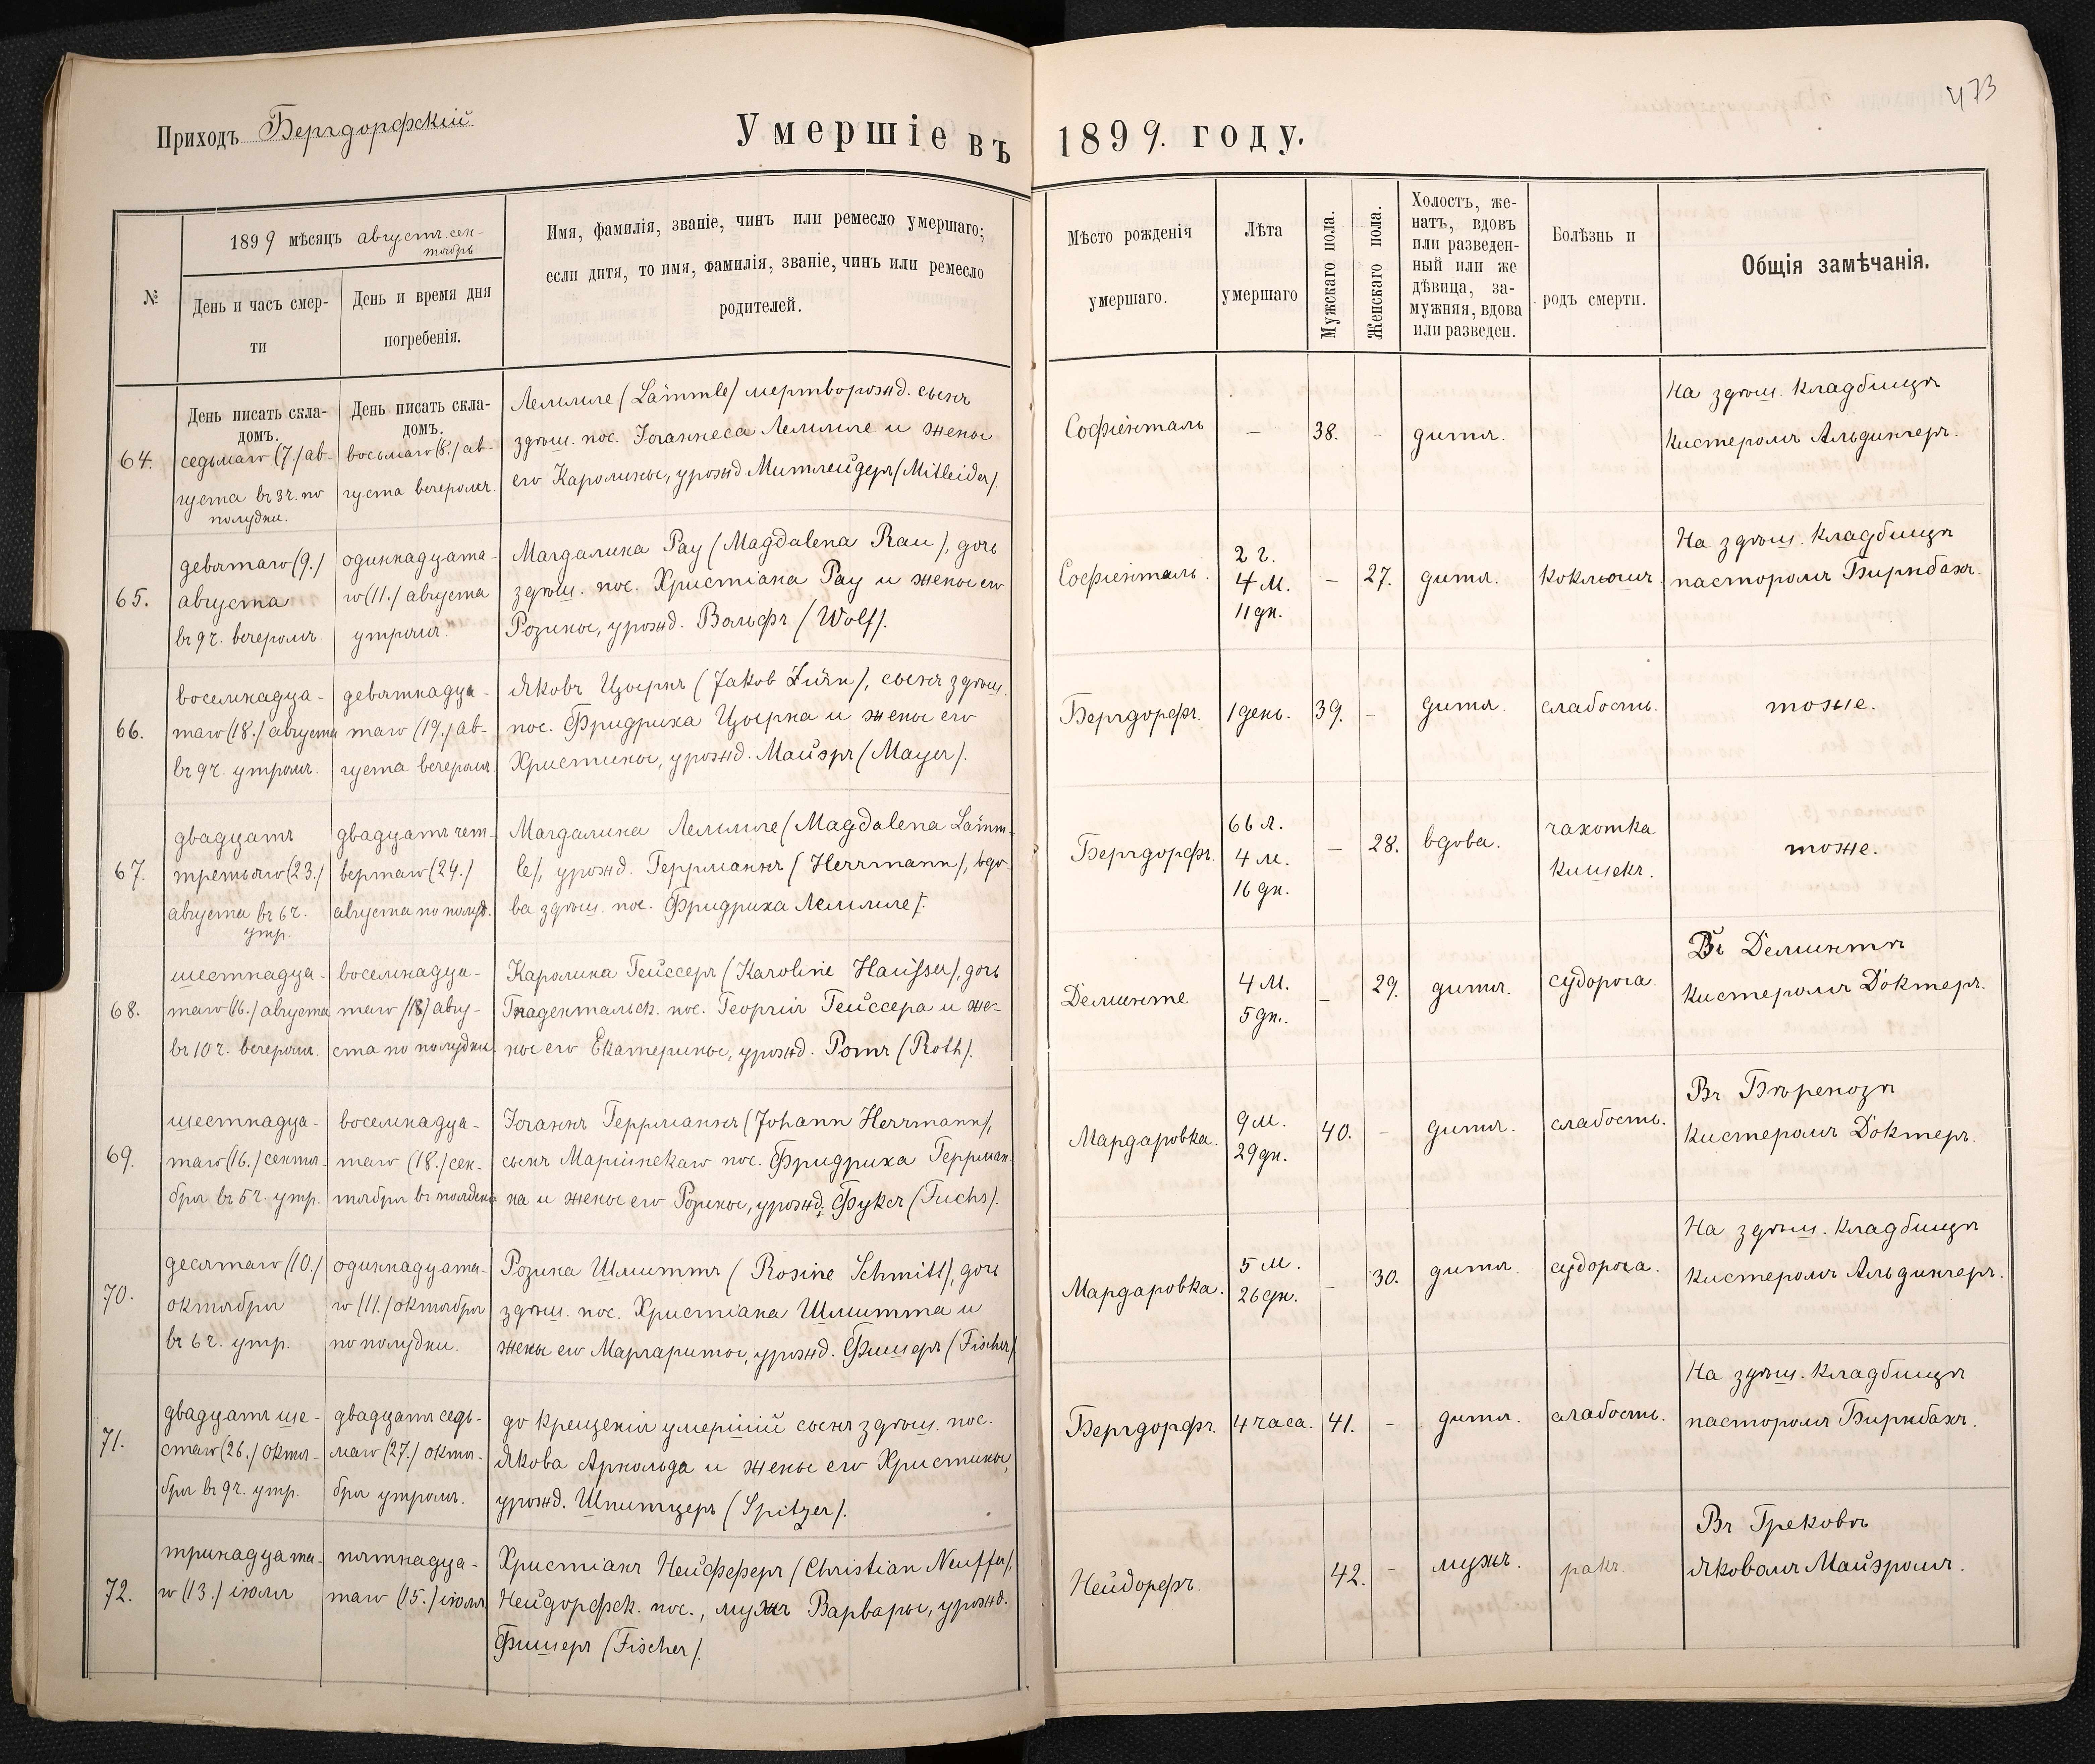 473
Приходъ Бергдорфскій
Умершіе въ 1899. году.
№
1899 мѣсяцъ августъ, сен-
тябрь
День и часъ смер-
ти
День и время дня
погребенія.
Имя, фамилія, званіе, чинъ или ремесло умершаго;
если дитя, то имя, фамилія, званіе, чинъ или ремесло
родителей.
Мѣсто рожденія
умершаго.
Лѣта
умершаго
Мужскаго пола.
Женскаго пола.
Холостъ, же-
натъ, вдовъ
или разведен-
ный или же
дѣвица, за-
мужняя, вдова
или разведен.
Болѣзнь и
родъ смерти.
Общія замѣчанія.
64.
День писать скла-
домъ.
седьмаго (7./ ав-
густа въ 3ч. по
полудни.
День писать скла-
домъ.
восьмаго (8./ ав-
густа вечеромъ.
Леммле (Lämmle/ мертворожд. сынъ
здѣш. пос. Іоганнеса Леммле и жены
его Каролины, урожд. Митлейдеръ (Mitleider/.
Софіенталь
–
38.
-
дитя.
На здѣш. кладбищѣ
Кистеромъ Альдингеръ.
65.
девятаго (9./
августа
въ 9ч. вечеромъ.
одиннадцата-
го (11./ августа
утромъ.
Магдалина Рау (Magdalena Rau), дочь
здѣш. пос. Христіана Рау и жены его
Розины, урожд. Вольфъ (Wolf/.
Софіенталь.
2 г.
4 м.
11 дн.
–
27.
дитя.
коклюшъ.
На здѣш. кладбищѣ
пасторомъ Бирнбахъ.
66.
восемнадца-
таго (18./ августа
въ 9ч. утромъ.
девятнадца-
таго (19./ ав-
густа вечеромъ.
Яковъ Цюрнъ (Jakob Zürn/, сынъ здѣш.
пос. Фридриха Цюрна и жены его
Христины, урожд. Майэръ (Mayer/.
Бергдорфъ.
1 день.
39.
-
дитя.
слабость.
тоже.
67.
двадцать
третьяго (23./
августа въ 6ч.
утр.
двадцать чет-
вертаго (24./
августа по полуд.
Магдалина Леммле (Magdalena Lämm-
le/, урожд. Геррманнъ (Herrmann/, вдо-
ва здѣш. пос. Фридриха Леммле/.
Бергдорфъ.
66 л.
4 м.
16 дн.
–
28.
вдова.
чахотка
кишекъ.
тоже.
68.
шестнадца-
таго (16./ августа
въ 10ч. вечеромъ.
восемнадца-
таго (18/ авгу-
ста по полудни.
Каролина Гейссеръ (Karoline Häusser/, дочь
Гнадентальск. пос. Георгія Гейссера и же-
ны его Екатерины, урожд. Ротъ (Roth/.
Делинте
4 м.
5 дн.
–
29.
дитя.
судорога.
Въ Делинтѣ
Кистеромъ Доктеръ.
69.
шестнадца-
таго (16./ сентя-
бря въ 5ч. утр.
восемнадца-
таго (18./ сен-
тября въ полдень
Іоганнъ Геррманнъ (Johann Herrmann/,
сынъ Маріинскаго пос. Фридриха Геррман-
на и жены его Розины, урожд. Фуксъ (Fuchs/.
Мардаровка.
9 м.
29 дн.
40.
-
дитя.
слабость.
Въ Бѣрепозѣ
Кистеромъ Доктеръ.
70.
десятаго (10./
октября
въ 6ч. утр.
одиннадцата-
го (11./ октября
по полудни.
Розина Шмиттъ (Rosine Schmitt/, дочь
здѣш. пос. Христіана Шмитта и
жены его Маргариты, урожд. Фишеръ (Fischer/
Мардаровка.
5 м.
26 дн.
–
30.
дитя.
судорога.
На здѣш. кладбищѣ
Кистеромъ Альдингеръ.
71.
двадцать ше-
стаго (26./ октя-
бря въ 9ч. утр.
двадцать седь-
маго (27./ октя-
бря утромъ.
до крещенія умершій сынъ здѣш. пос.
Якова Арнольда и жены его Христины,
урожд. Шпитцеръ (Spitzer/.
Бергдорфъ.
4 часа.
41.
-
дитя.
слабость.
На здѣш. кладбищѣ
пасторомъ Бирнбахъ.
72.
тринадцата-
го (13./ іюля
пятнадца-
таго (15./ іюля
Христіанъ Нейфферъ (Christian Neuffer/,
Нейдорфск. пос., мужъ Варвары, урожд.
Фишеръ (Fischer/.
Нейдорфъ.
42.
-
мужъ.
ракъ.
Въ Грековѣ
Яковомъ Майэромъ.